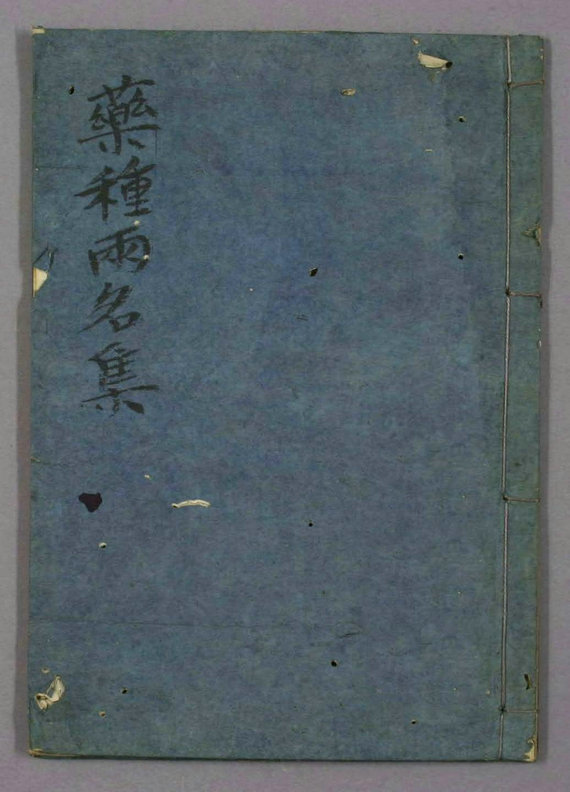 藥種兩名集